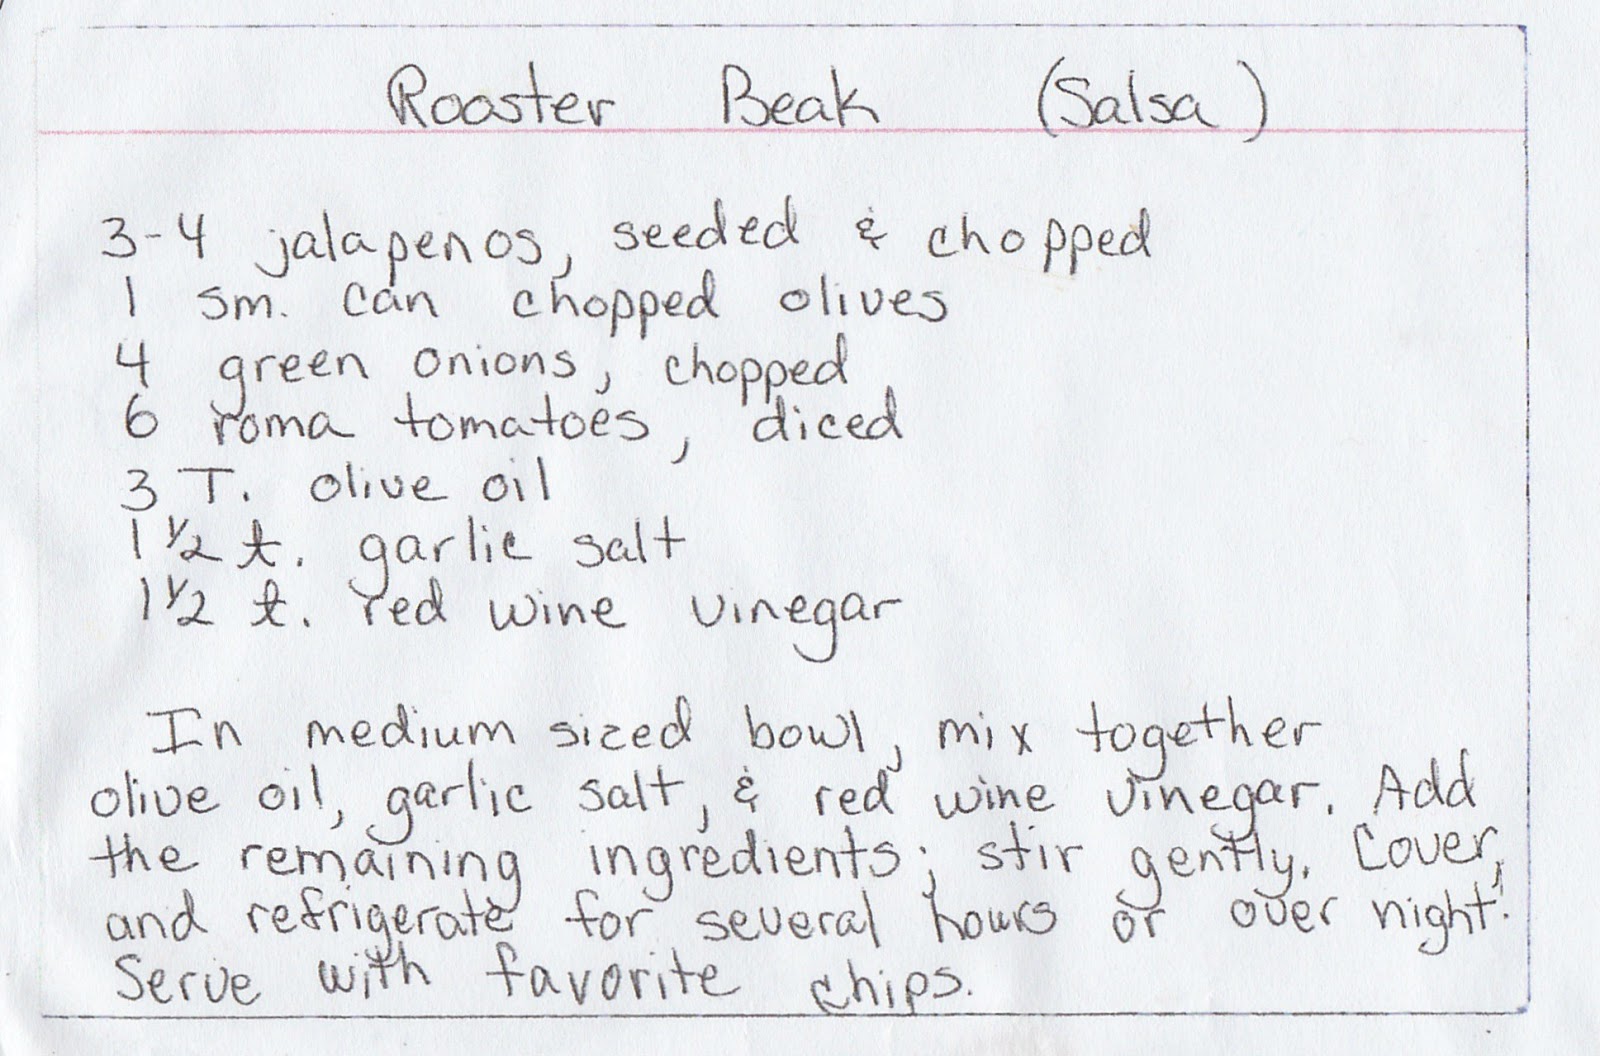 Rooster Beak (Salsa)
3-4 jalapenos, seeded & chopped
1 sm. can chopped olives
4 green onions, chopped
6 roma tomatoes, diced
3 T. olive oil
1 1/2 t. garlic salt
1 1/2 t. red wine vinegar
In medium sized bowl, mix together
olive oil, garlic salt, & red wine vinegar. Add
the remaining ingredients; stir gently. Cover,
and refrigerate for several hours or over night.
Serve with favorite chips.